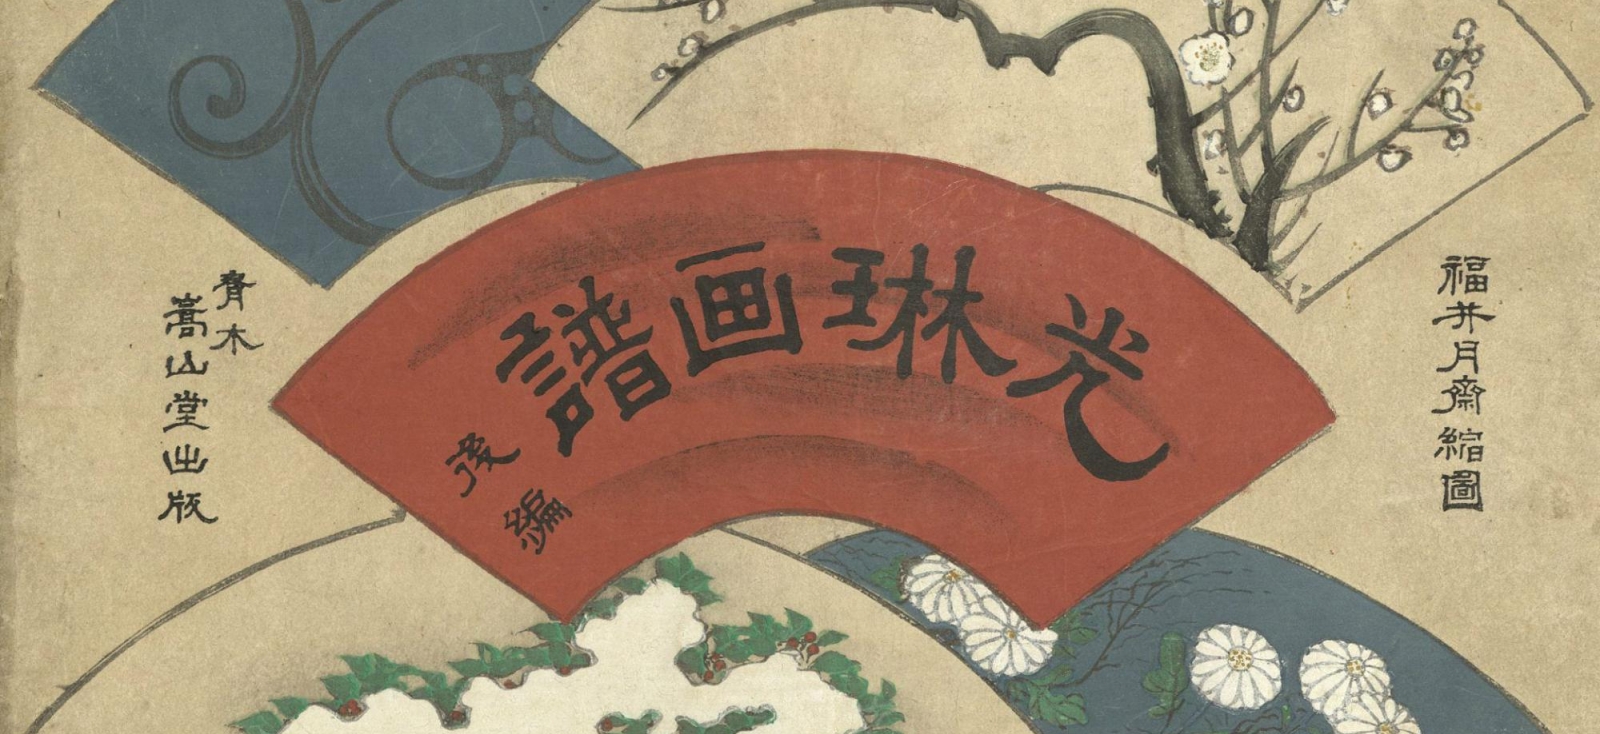 福井月齋縮圖
光琳画譜
後編
青木
嵩山堂出版